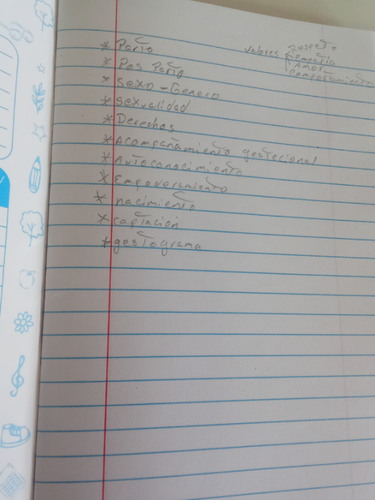 * Parto
* Pos Parto
* Sexo - Genero
* sexualidad
* Derechos
* Acompañamiento gestacional
* Autoconocimiento
* Empoderamiento
* nacimiento
* captación
* gestograma
valores Respeto
Empatía
Amor